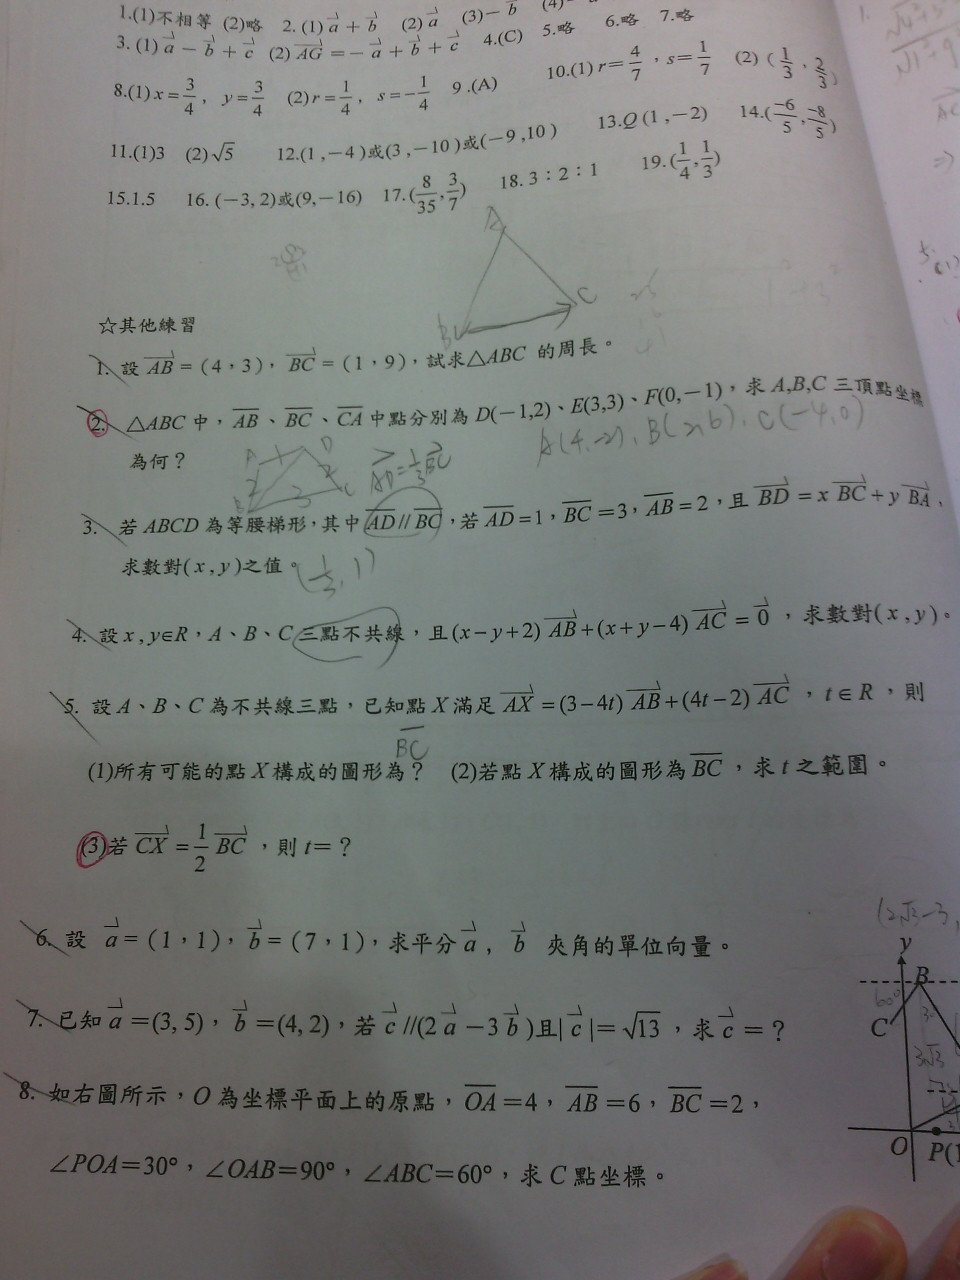 1.(1)不相等 (2)略 2. (1) a + b (2) a (3)− b (4)−
3. (1) a − b + c (2) AG = − a + b + c 4.(C) 5.略 6.略 7.略
8.(1) x = 3/4 , y = 3/4 (2) r = 1/4 , s = − 1/4 9 .(A) 10.(1) r = 4/7 , s = 1/7 (2) ( 1/3 , 2/3 )
11.(1)3 (2) √5 12.(1 , −4 )或(3 , −10 )或(−9 ,10 ) 13.Q (1 , −2) 14.( −6/5 , −8/5 )
15.1.5 16. (−3, 2)或(9, −16) 17.( 8/35 , 3/7 ) 18. 3:2:1 19.( 1/4 , 1/3 )
A
B C
☆其他練習
1. 設 AB = (4,3), BC = (1,9),試求△ABC 的周長。
2. △ABC 中, AB 、 BC 、 CA 中點分別為 D(−1,2)、E(3,3)、F(0,−1),求 A,B,C 三頂點坐標
為何?
A(4,-2), B(2,6), C(-4,0)
A 1 D
2 2
B 3 C
AD = 1/3 BC
3. 若 ABCD 為等腰梯形,其中 AD // BC ,若 AD =1, BC =3, AB =2,且 BD = x BC + y BA ,
求數對(x , y)之值。 (1/3, 1)
4. 設 x , y∈R,A、B、C 三點不共線,且 (x−y+2) AB +(x+y−4) AC = 0 ,求數對(x , y)。
5. 設 A、B、C 為不共線三點,已知點 X 滿足 AX = (3−4t) AB +(4t−2) AC , t∈R ,則
BC
(1)所有可能的點 X 構成的圖形為? (2)若點 X 構成的圖形為 BC ,求 t 之範圍。
(3)若 CX = 1/2 BC ,則 t= ?
6. 設 a = (1,1), b = (7,1),求平分 a , b 夾角的單位向量。
7. 已知 a =(3, 5), b =(4, 2),若 c //(2 a −3 b )且| c |= √13 ,求 c = ?
8. 如右圖所示,O 為坐標平面上的原點, OA =4, AB =6, BC =2,
∠POA=30°,∠OAB=90°,∠ABC=60°,求 C 點坐標。
(2√3-3,
y
B
60°
C
3√3
O P(1